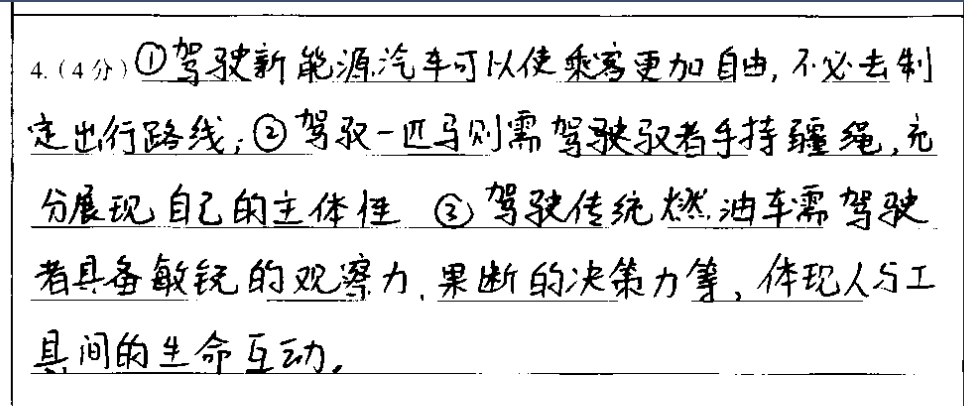 4.(4分)①驾驶新能源汽车可以使乘客更加自由,不必去制
定出行路线;②驾驭一匹马则需驾驶驭者手持疆绳,充
分展现自己的主体性 ③驾驶传统燃油车需驾驶
者具备敏锐的观察力、果断的决策力等,体现人与工
具间的生命互动。